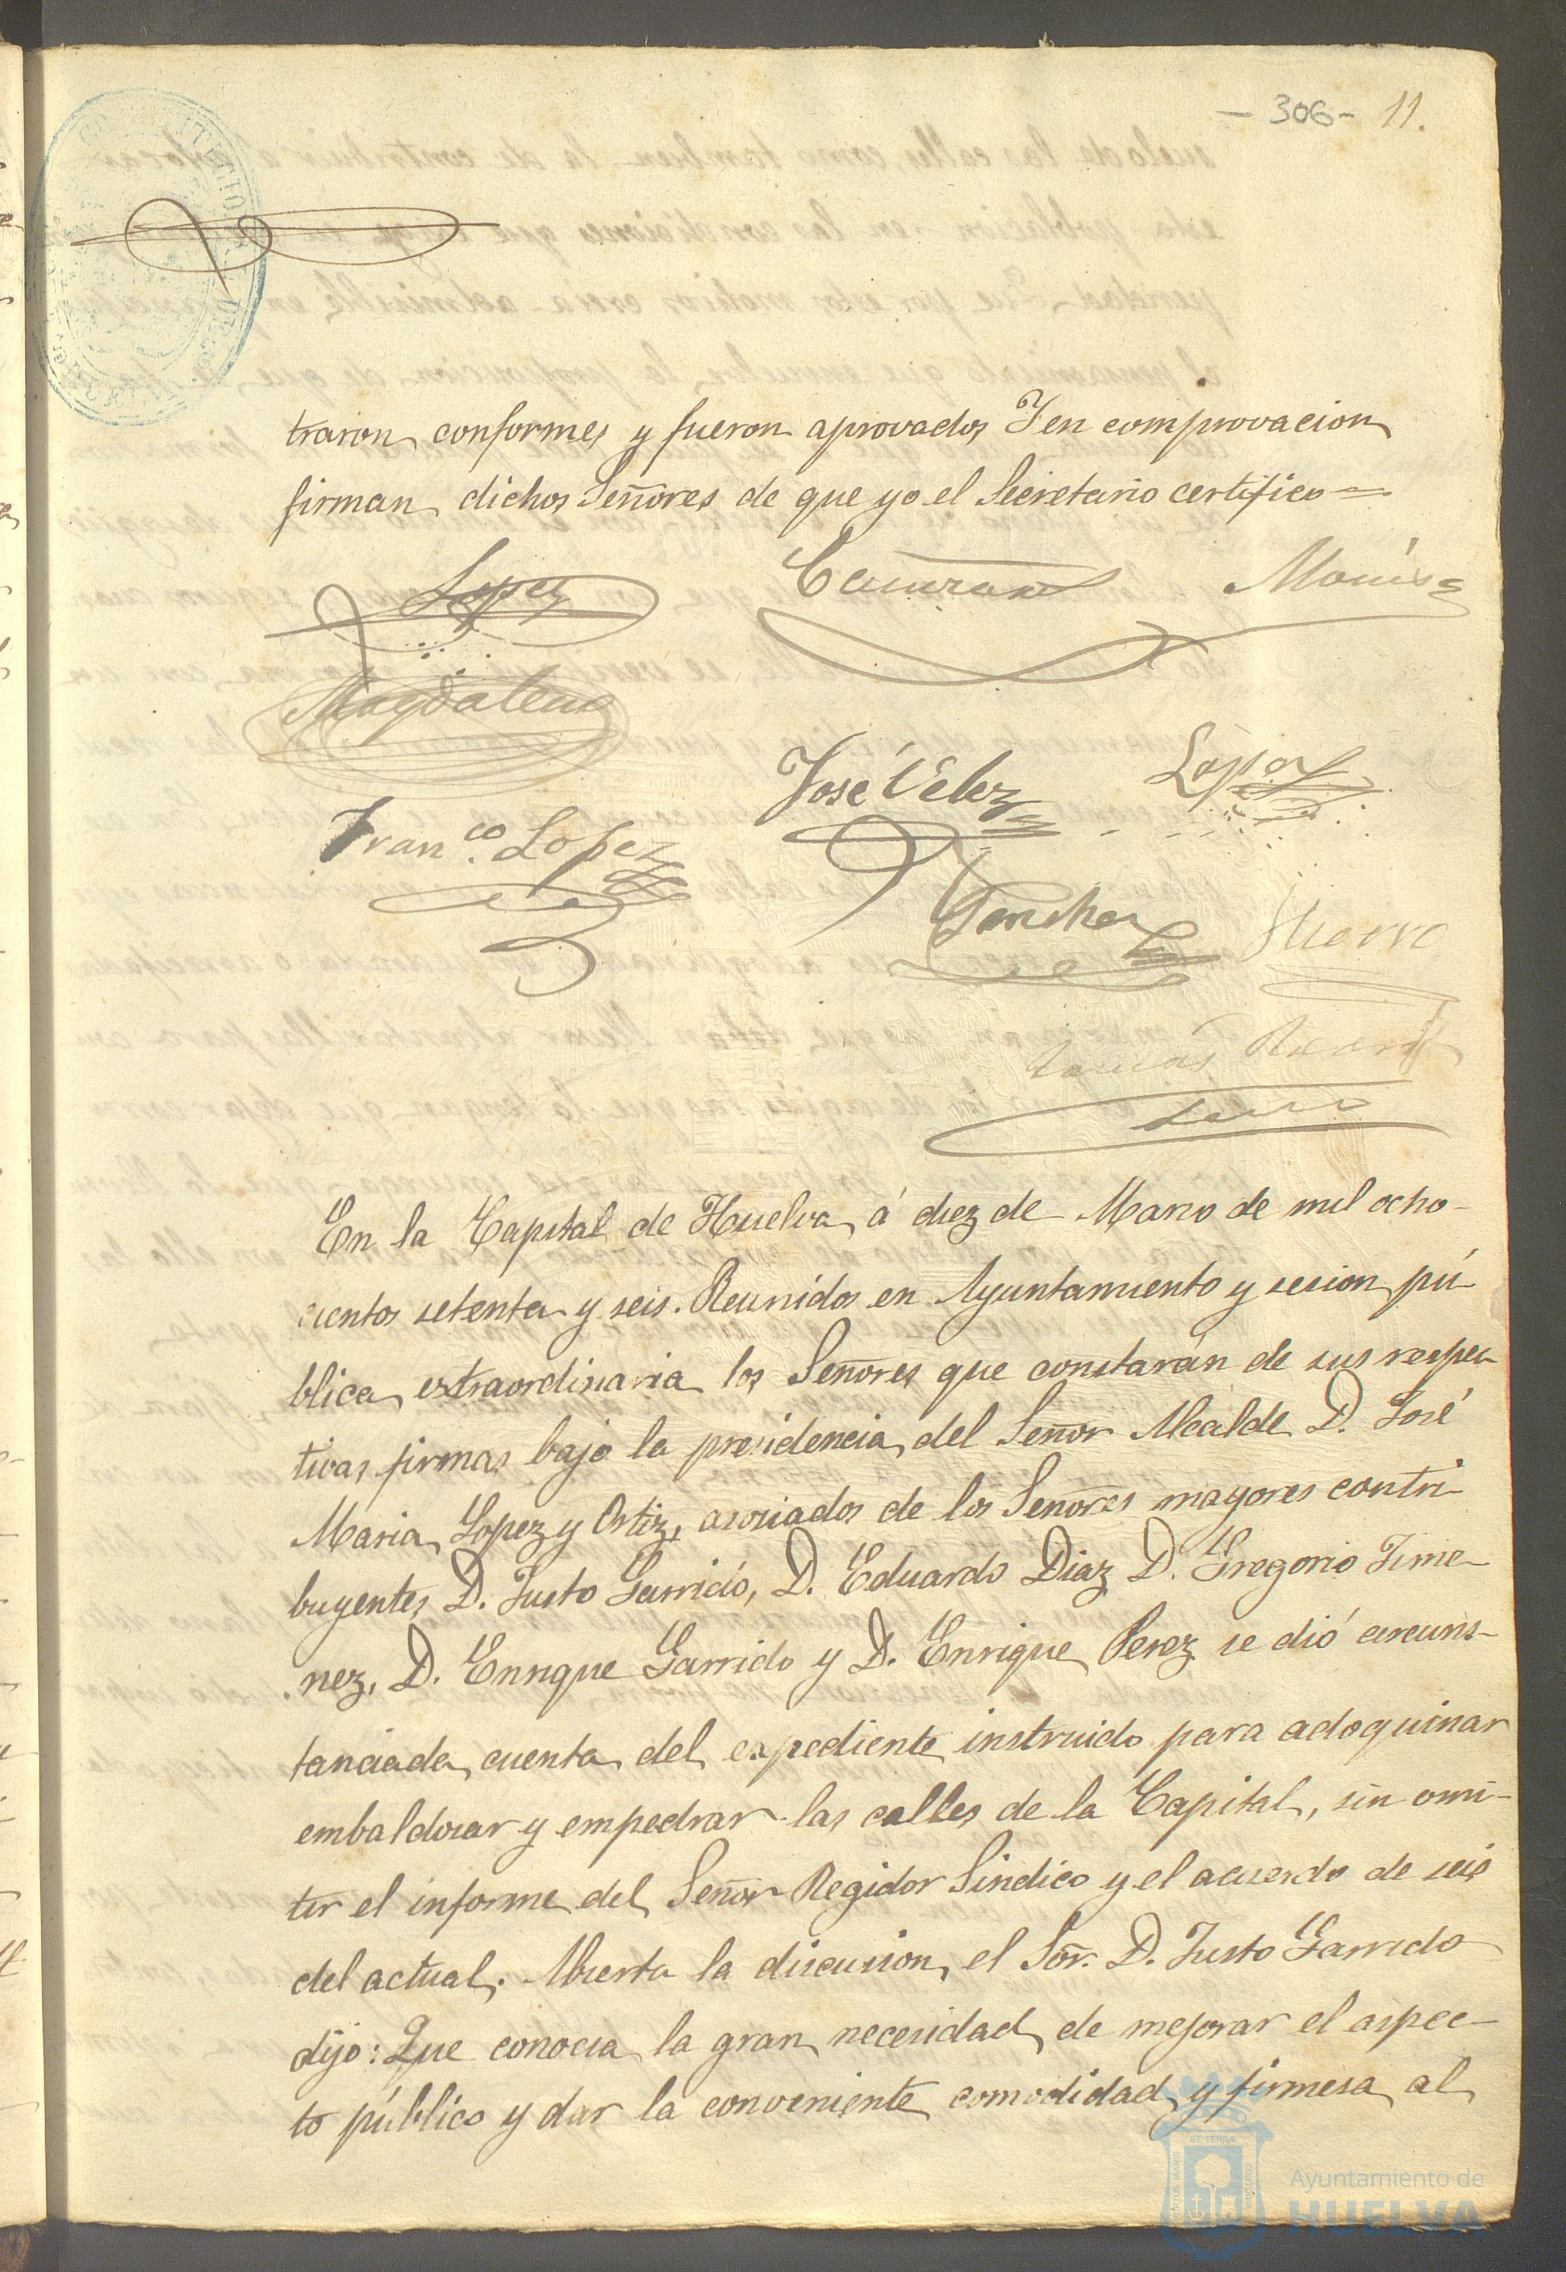 - 306 - 11.
traron conformes y fueron aprovados Y en comprovacion
firman dichos Señores de que yo el Secretario certifico =
Lopez
Magdalena
José Velez Lopez
Fran.co Lopez
Sanchez
En la Capital de Huelva á diez de Marzo de mil ocho-
cientos setenta y seis. Reunidos en Ayuntamiento y sesion pú
blica extraordinaria los Señores que constarán de sus respec
tivas firmas bajo la presidencia del Señor Alcalde D. José
Maria Lopez y Ortiz, asociados de los Señores mayores contri
buyentes D. Justo Garrido, D. Eduardo Diaz D. Gregorio Jime-
nez, D. Enrique Garrido y D. Enrique Perez se dió circuns-
tanciada cuenta del expediente instruido para adoquinar
embaldosar y empedrar las calles de la Capital, sin omi-
tir el informe del Señor Regidor Sindico y el acuerdo de seis
del actual. Abierta la discusion, el Sör. D. Justo Garrido
dijo: Que conocia la gran necesidad de mejorar el aspec-
to público y dar la conveniente comodidad y firmesa al
Ayuntamiento de
HUELVA